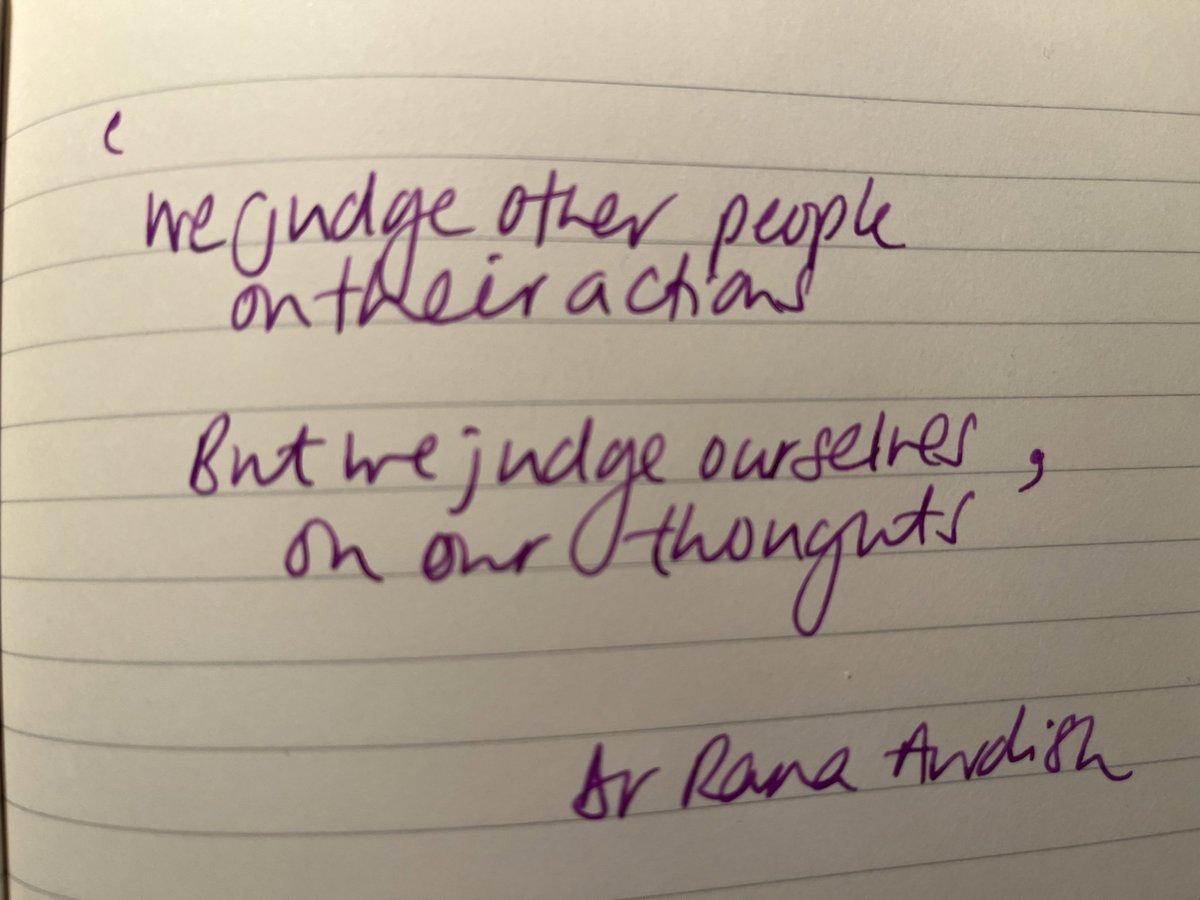 ‘
we judge other people
on their actions
But we judge ourselves ,
on our thoughts
Dr Rana Awdish